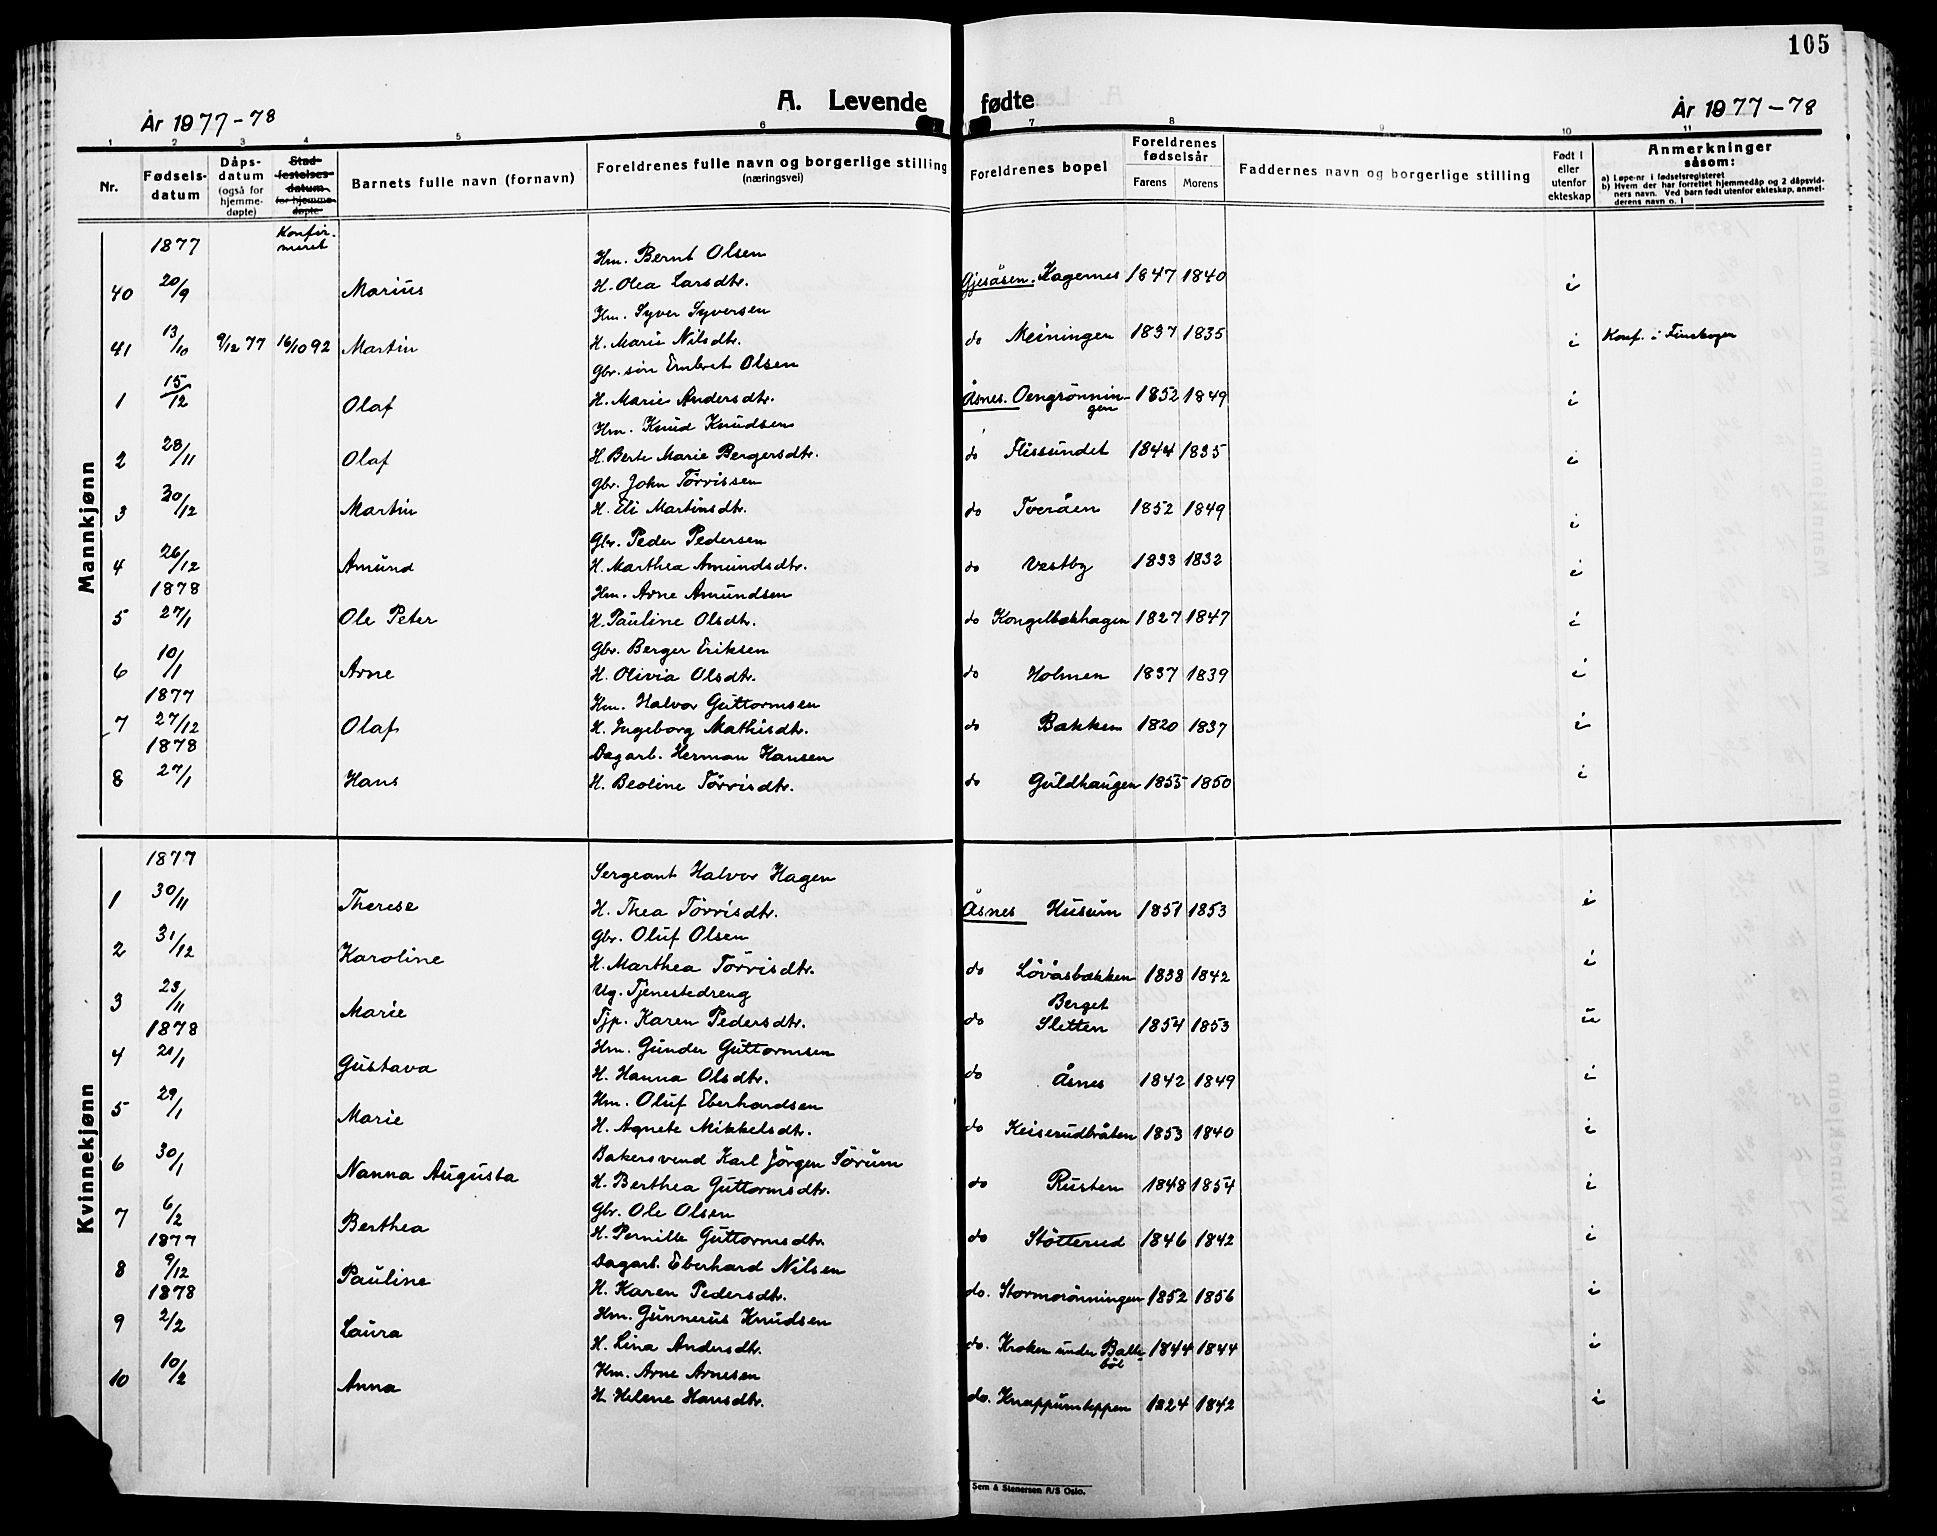 105
A. Levende fødte
År 1977-78
År 1977-78
1 2 3 4 5 6 7 8 9 10 11
Nr. Fødselsdatum Dåpsdatum (også for hjemmedøpte) Stadfestelsesdatum for hjemmedøpte Barnets fulle navn (fornavn) Foreldrenes fulle navn og borgerlige stilling (næringsvei) Foreldrenes bopel Foreldrenes fødselsår Farens Morens Faddernes navn og borgerlige stilling Født i eller utenfor ekteskap Anmerkninger såsom:
a) Løpe-nr i fødselsregisteret
b) Hvem der har forrettet hjemmedåp og 2 dåpsvidners navn. Ved barn født utenfor ekteskap, anmelderens navn o. l
Mannkjønn
1877 Konfirmeret
Hm. Bernt Olsen
40 20/9 Marius H. Olea Larsdtr. Gjesåsen. Kagernes 1847 1840 i
Hm. Syver Syversen
41 13/10 9/12 77 16/10 92 Martin H. Marie Nilsdtr. do Meiningen 1837 1835 i Konf. i Finskogen
Gbr. søn Embret Olsen
1 15/12 Olaf H. Marie Andersdtr. Åsnes. Oengrönningen 1852 1849 i
Hm. Knud Knudsen
2 28/11 Olaf H. Berte Marie Bergersdtr. do Flissundet 1844 1835 i
Gbr. John Törrissen
3 30/12 Martin H. Eli Martinsdtr. do Tveråen 1852 1849 i
Gbr. Peder Pedersen
4 26/12 Amund H. Marthea Amundsdtr. do Vestby 1833 1832 i
1878 Hm. Arne Amundsen
5 27/1 Ole Peter H. Pauline Olsdtr. do Kongelbækhagen 1827 1847 i
Gbr. Berger Eriksen
6 10/1 Arne H. Olivia Olsdtr. do Holmen 1837 1839 i
1877 Hm. Halvor Guttormsen
7 27/12 Olaf H. Ingeborg Mathisdtr. do Bakken 1820 1837 i
1878 Dagarb. Herman Hansen
8 27/1 Hans H. Beoline Törrisdtr. do Guldhaugen 1855 1850 i
Kvinnekjønn
1877 Sergeant Halvor Hagen
1 30/11 Therese H. Thea Törrisdtr. Åsnes Husum 1851 1853 i
Gbr. Oluf Olsen
2 31/12 Karoline H. Marthea Törrisdtr. do Lövåsbækken 1838 1842 i
Ug. Tjenestedreng Berget
3 23/11 Marie Tjp. Karen Pedersdtr. do Sletten 1854 1853 u
1878 Hm. Gunder Guttormsen
4 20/1 Gustava H. Hanna Olsdtr. do Åsnes 1842 1849 i
Hm. Oluf Eberhardsen
5 29/1 Marie H. Agnete Mikkelsdtr. do Keiserudbråten 1853 1840 i
Bakersvend Karl Jörgen Sörum
6 30/1 Nanna Augusta H. Berthea Guttormsdtr. do Rusten 1848 1854 i
Gbr. Ole Olsen
7 6/2 Berthea H. Pernille Guttormsdtr. do Stötterud 1846 1842 i
1877 Dagarb. Eberhard Nilsen
8 9/12 Pauline H. Karen Pedersdtr. do. Stormorönningen 1852 1856 i
1878 Hm. Gunnerus Knudsen
9 2/2 Laura H. Lina Andersdtr. do. Kroken under Balleböl 1844 1844 i
Hm. Arne Arnesen
10 10/2 Anna H. Helene Hansdtr. do. Knappumteppen 1824 1842 i
Sem & Stenersen A/S Oslo.